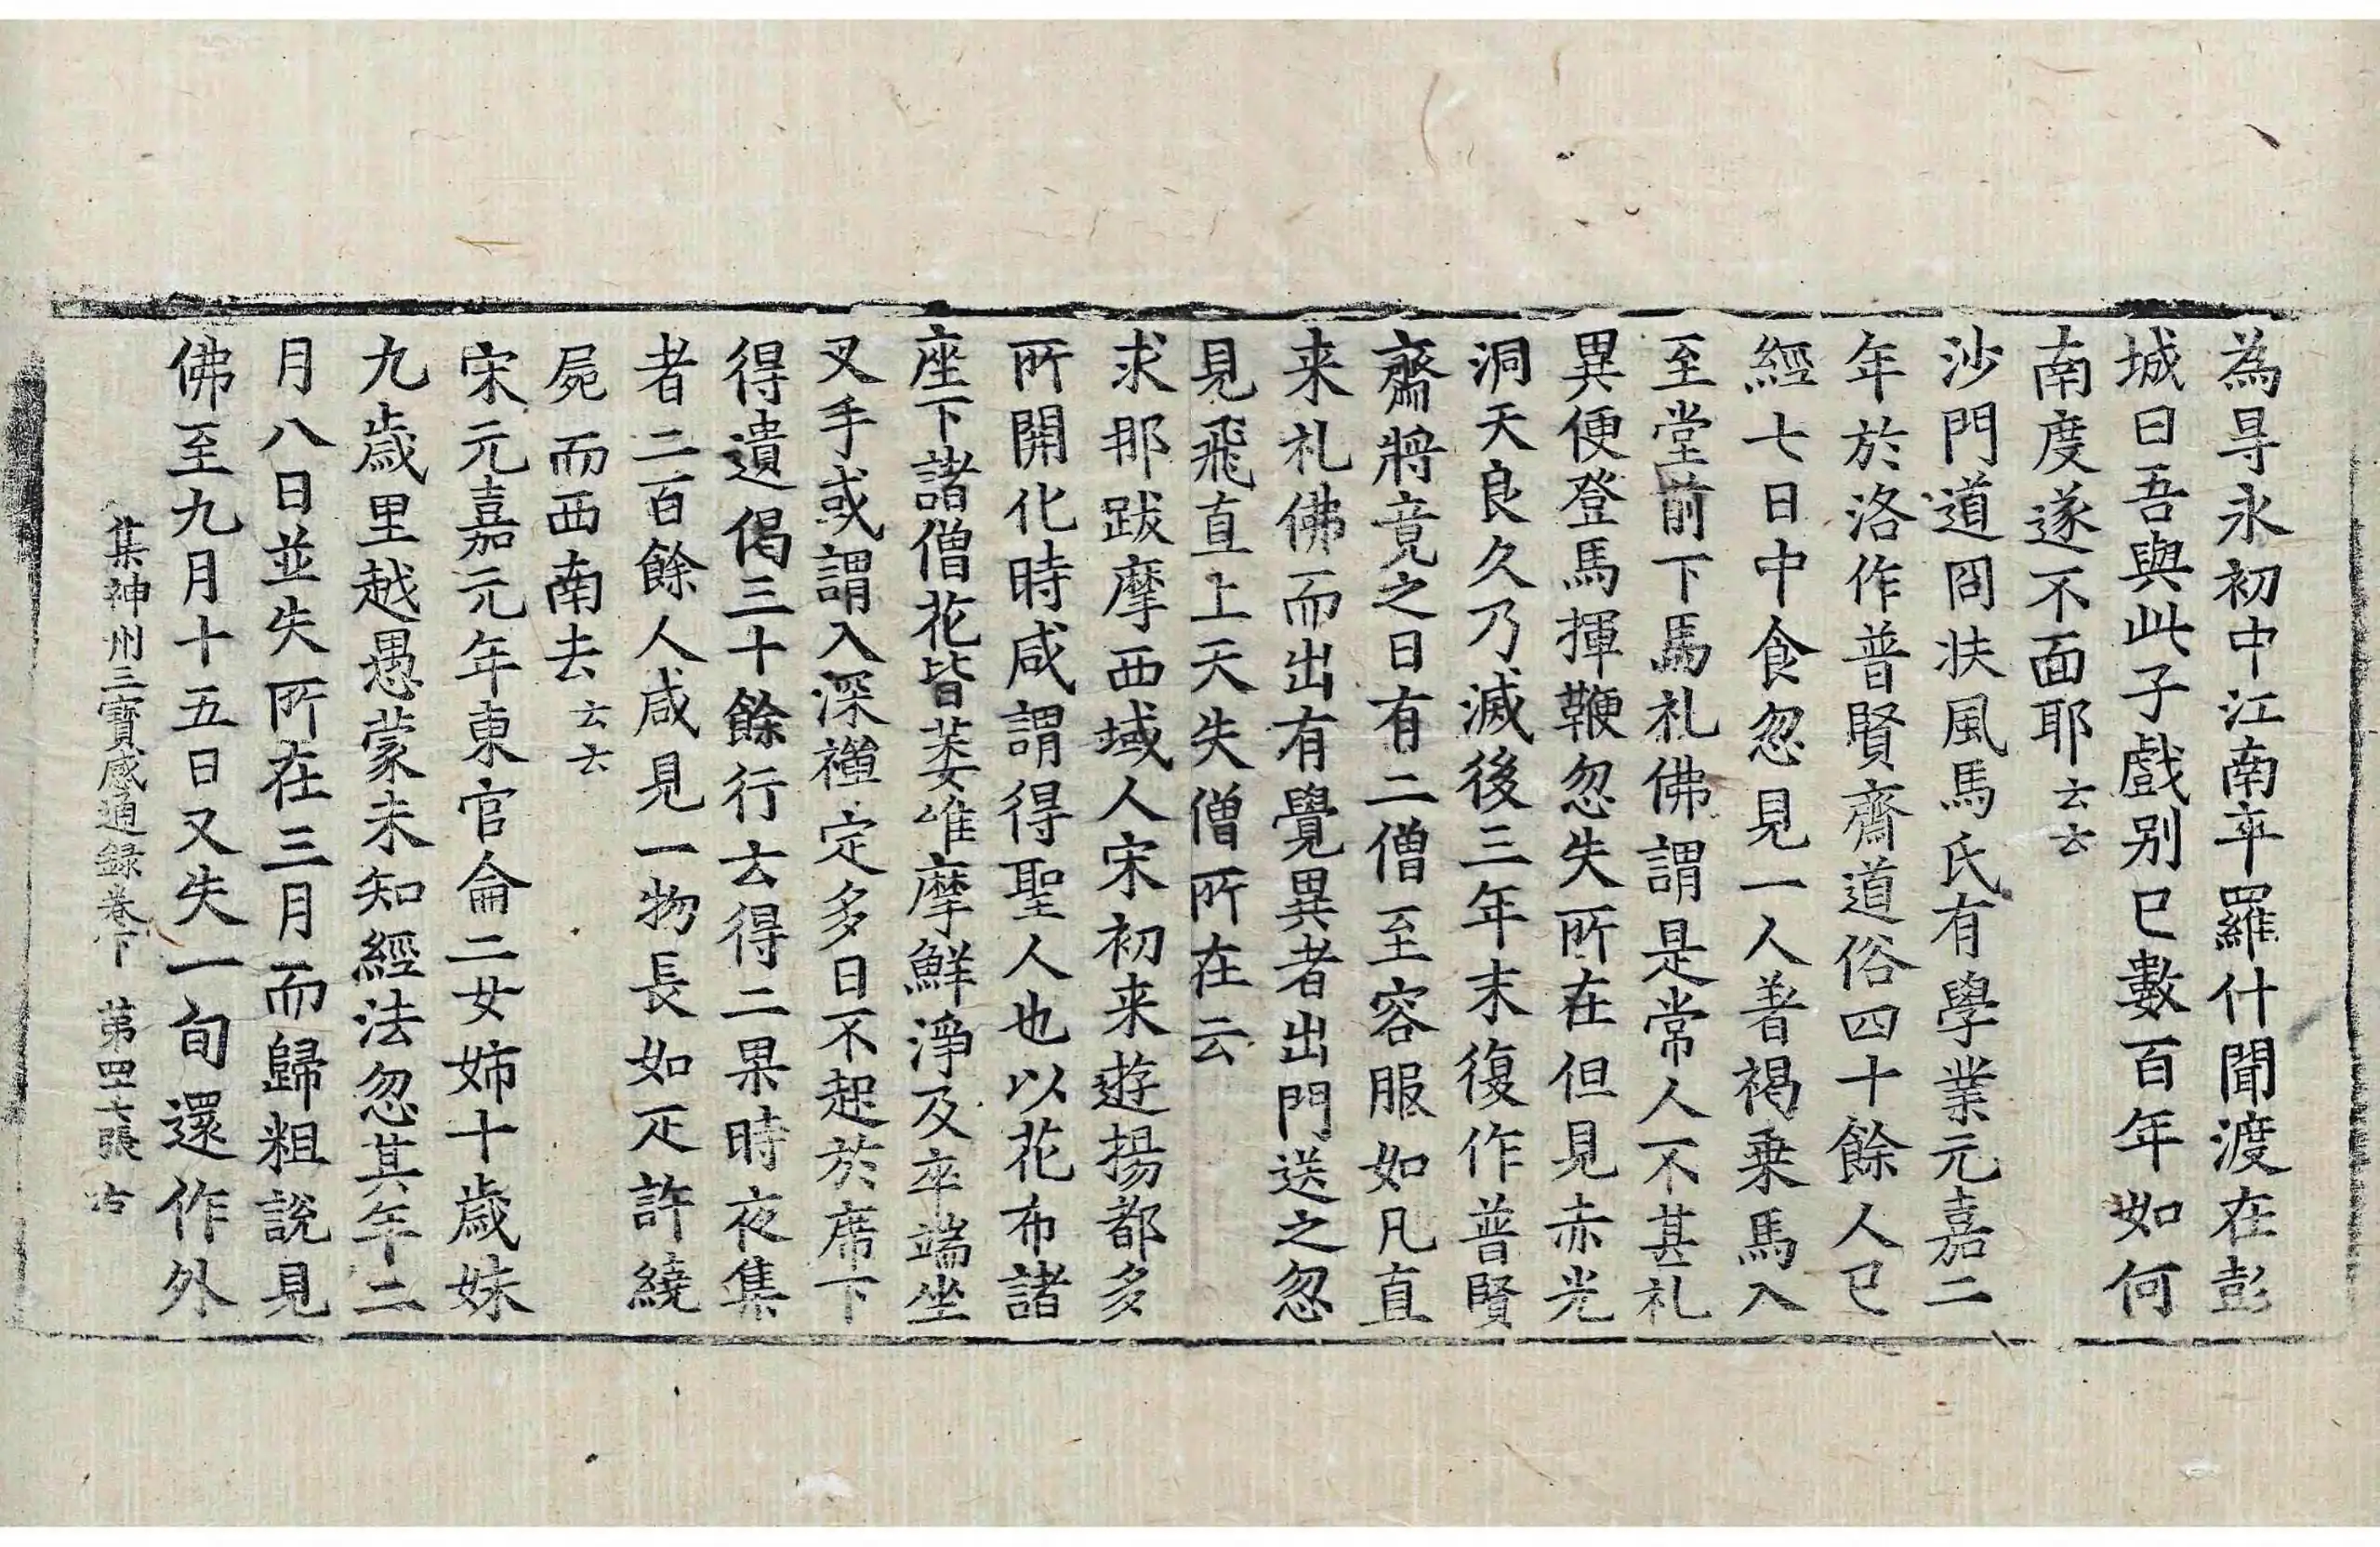 為㝷永初中江南平羅什聞渡在彭
城曰吾與此子戲别已數百年如何
南度遂不面耶云云
沙門道冏扶風馬氏有學業元嘉二
年於洛作普賢齋道俗四十餘人已
經七日中食忽見一人著褐乗馬入
至堂前下馬礼佛謂是常人不甚礼
異便登馬揮鞭忽失所在但見赤光
洞天良久乃滅後三年末復作普賢
齋將竟之日有二僧至容服如凡直
来礼佛而出有覺異者出門送之忽
見飛直上天失僧所在云
求那跋摩西域人宋初来遊揚都多
所開化時咸謂得聖人也以花布諸
座下諸僧花皆萎唯摩鮮淨及卒端坐
叉手或謂入深禪定多日不起於席下
得遺偈三十餘行去得二果時夜集
者二百餘人咸見一物長如疋許繞
屍而西南去云云
宋元嘉元年東官侖二女姉十歲妹
九歲里越愚蒙未知經法忽其年二
月八日並失所在三月而歸粗說見
佛至九月十五日又失一旬還作外
集神州三寶感通録卷下 第四十七張 右